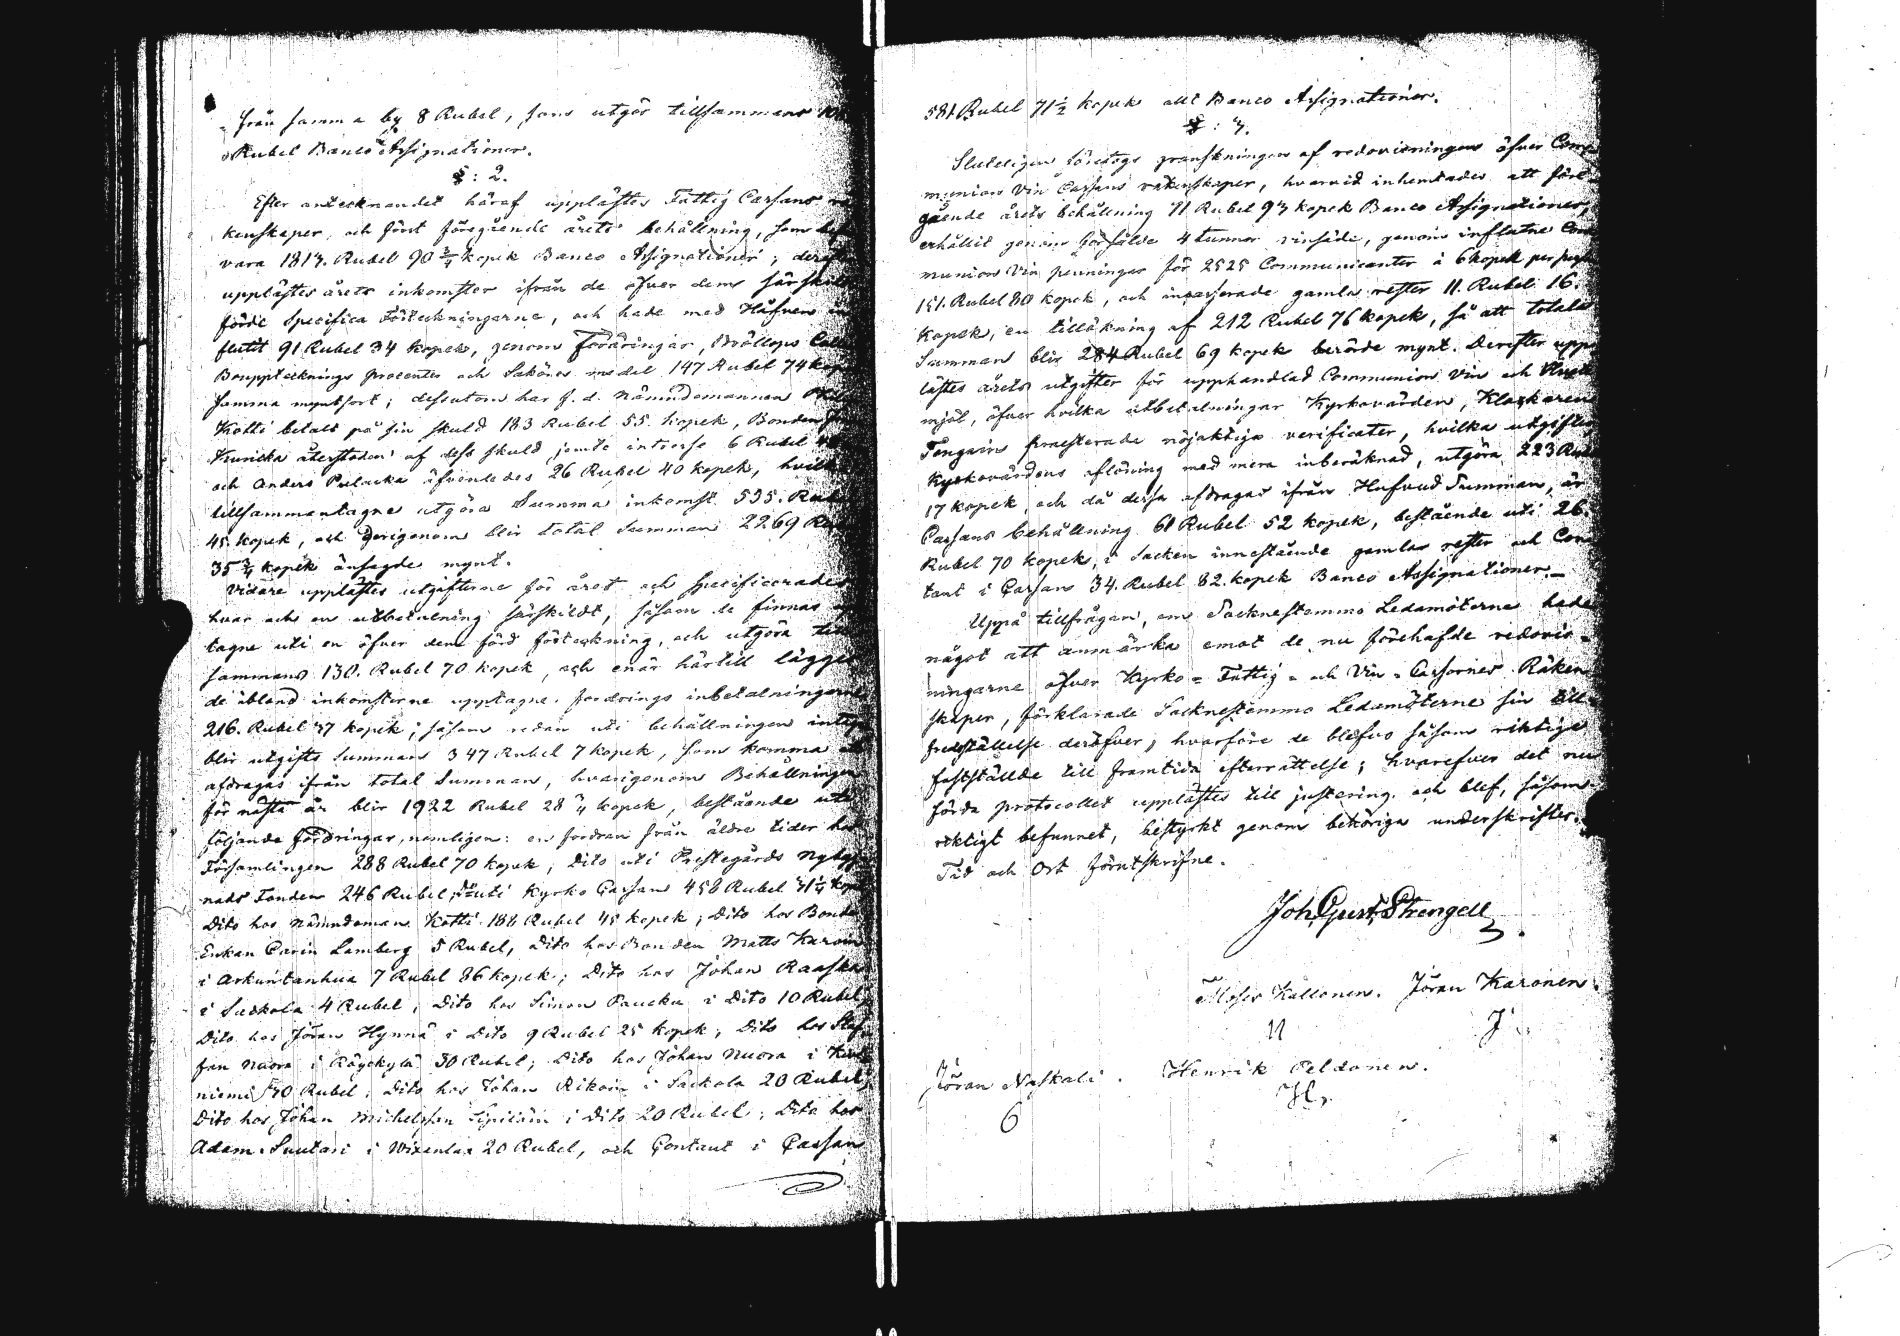 från samma by 8 Rubel, som utgör tillsammans
Rubel Banco Assignationer.
§: 2.
Efter antecknandet häraf upplästes Fattig Cassans
kenskaper, och först föregående årets behållning, som
vara 1817. Rubel 90 3/4 kopek Banco Assignationer;
upplästes årets inkomster ifrån de öfver dem särskildt
förde Specifica Förteckningarne, och hade med Håfven in
flutit 91 Rubel 34 kopek, genom Föräringar, Bröllops
Boupptecknings procenter och Sakören medel 147 Rubel 74 kop
samma myntsort; dessutom har f. d. nämndemannen
Kotti betalt på sin skuld 183 Rubel 55. kopek, Bonden
Kunicka återstoden af dess skuld jemte intresse 6 Rubel
och Anders Pulacka äfvenledes 26 Rubel 40 kopek, hvilka
tillsammantagne utgöra Summa inkomst 535. Rubel
45. kopek, och derigenom blir total Summan 2269 Rub
35 3/4 kopek ånsagde mynt.
Vidare upplästes utgifterne för året och specificerades
hvar och en utbetalning särskildt, såsom de finnas
tagne uti en öfver dem förd förteckning, och utgöra till
sammans 130. Rubel 70 kopek, och enär härtill lägges
de ibland inkomsterne upptagne fordrings inbetalningarne
216. Rubel 37 kopek, såsom redan uti behållningen
blir utgifts summan 347 Rubel 7 kopek, som komma att
afdragas ifrån total Summan, hvarigenom Behållningen
för nästa år blir 1922 Rubel 28 3/4 kopek, bestående uti
följande fordringar, nemligen: en fordran från äldre tider hos
Församlingen 288 Rubel 70 kopek, Dito uti Prestegårds Nybygg
nads Fonden 246 Rubel, Do uti Kyrko Cassan 458 Rubel 31 1/4 kop
Dito hos Nämndeman Kotti 188 Rubel 45 kopek; Dito hos Bonde
Enkan Carin Lamberg 5 Rubel, Dito hos Bonden Matts Karvin
i Arkuntanhua 7 Rubel 86 kopek; Dito hos Johan Raaska
i Sackola 4 Rubel, Dito hos Simon Paucku i Dito 10 Rubel,
Dito hos Jöran Hynnä i Dito 9 Rubel 25 kopek; Dito hos Stef-
fan Nuora i Röyckylä 30 Rubel; Dito hos Johan Nuora i
niemi 70 Rubel, Dito hos Johan Rikoin i Sackola 20 Rubel,
Dito hos Johan Michelsson Sipiläin i Dito 20 Rubel; Dito hos
Adam Suutari i Wixenlax 20 Rubel, och Contant i Cassan
581 Rubel 71 1/2 kopek allt Banco Assignationer.
§: 3.
Slutligen företogs granskningen af redovisningen öfver Com
munions Vin Cassans räkenskaper, hvarvid inhemtades att före
gående årets behållning 71 Rubel 93 kopek Banco Assignationer,
erhållit genom försålde 4 tunnor vinsäde, genom influtne Com
munions Vin penningar för 2525 Communicanter à 6 kopek per person
151. Rubel 80 kopek, och incasserade gamla rester 11. Rubel 16.
kopek, en tillökning af 212 Rubel 76 kopek, så att totala
Summan blir 284 Rubel 69 kopek berörde mynt. Derefter upp
lästes årets utgifter för upphandlad Communions Vin och Hvete
mjöl, öfver hvilka utbetalningar Kyrkovärden, Klockaren
Fengvin presterade nöjaktiga verificater, hvilka utgifter,
Kyrkovärdens aflöning med mera inberäknad, utgöra 223 Rub
17 kopek, och då dessa afdragas ifrån Hufvud Summan, är
Cassans behållning 61 Rubel 52 kopek, bestående uti 26.
Rubel 70 kopek, i Socken innestående gamla rester och Con
tant i Cassan 34. Rubel 82. kopek Banco Assignationer.—
Uppå tillfrågan, om Socknestemmo Ledamöterne hade
något att anmärka emot de nu förehafde redovis-
ningarne öfver Kyrko- Fattig- och Vin- Cassornes Räken
skaper, förklarade Socknestemmo Ledamöterne sin till-
fredsställelse deröfver, hvarföre de blefvo såsom riktige
fastställde till framtida efterrättelse; hvarefver det nu
förda protocollet upplästes till justering och blef, såsom
riktigt befunnet, bestyrkt genom behöriga underskrifter.
Tid och Ort förutskrifne.
Joh. Gust. Strengell
Moses Kallonen. Jöran Karonen.
Jöran Naskali. Henrik Peldonen.